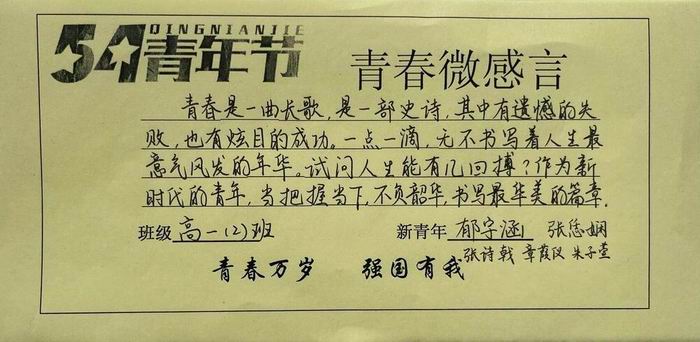 QINGNIANJIE
54青年节
青春微感言
青春是一曲长歌，是一部史诗，其中有遗憾的失
败，也有炫目的成功。一点一滴，无不书写着人生最
意气风发的年华。试问人生能有几回搏？作为新
时代的青年，当把握当下，不负韶华，书写最华美的篇章.
班级 高一(2)班 新青年 郁字涵 张恁娴
张诗戟 章葭仪 朱子萱
青春万岁 强国有我